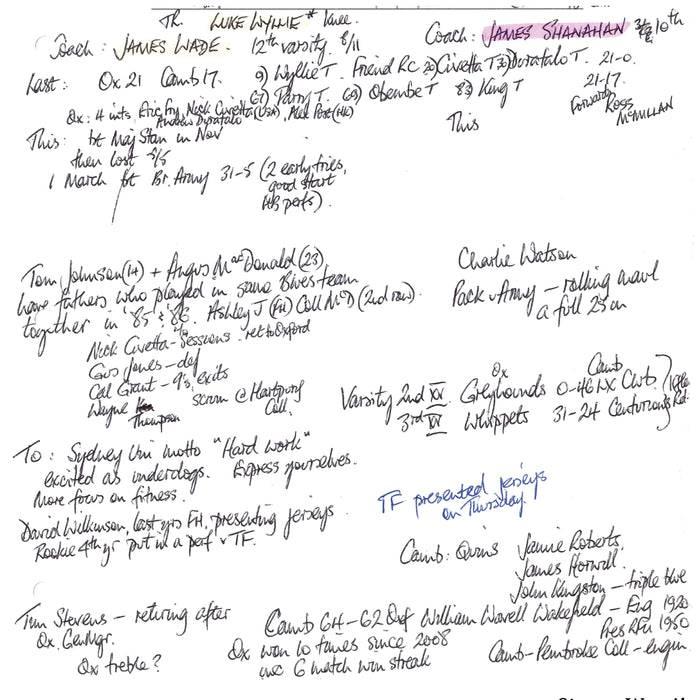 TR. LUKE WYLLIE * knee.
Coach: JAMES WADE. 12th varsity. 8/11
Coach: JAMES SHANAHAN 10th
Last: Ox 21 Camb 17. 9) Wyllie T. Friend RC 20) Civetta T Duratalo T. 21-0.
67) Parry T. 69) Obembe T 83) King T 21-17.
Ox: 4 ints Eric Fry, Nick Civetta (USA), Matt
Andrew Duratalo
Forward Ross
McMILLAN
This: bt Maj Stan in Nov
This
then lost 5/5
1 March bt Br. Army 31-5 (2 early tries,
good start
HB perfs).
Tom Johnson (14) + Angus MacDonald (23)
have fathers who played in same Blues team
together in '85 & '86. Ashley J (FH) Coll McD (2nd row).
Charlie Watson
Pack v Army – rolling maul
a full 25m
Nick Civetta – Sessions. ret to Oxford
Gus Jones – def
Cal Grant – 9's, exits
Wayne Thompson scrum @ Hartpury
Coll.
Ox Camb
Varsity 2nd XV Greyhounds 0-46 LX Club.
3rd XV Whippets 31-24 Centurions
To: Sydney Uni motto "Hard work"
excited as underdogs. Express yourselves.
More focus on fitness.
David Wilkinson, last yrs FH, presenting jerseys
Rookie 4th yr put in a perf v TF.
TF presented jerseys
on Thursday.
Camb: Quins Jamie Roberts,
James Horwill
John Kingston – triple blue
Tim Stevens – retiring after
Ox. Gen Mgr.
Ox treble?
Camb 64-62 Oxf
Ox won 10 times since 2008
inc 6 match win streak
William Wavell Wakefield – Eng 1920
Pres RFU 1950
Camb – Pembroke Coll – engin